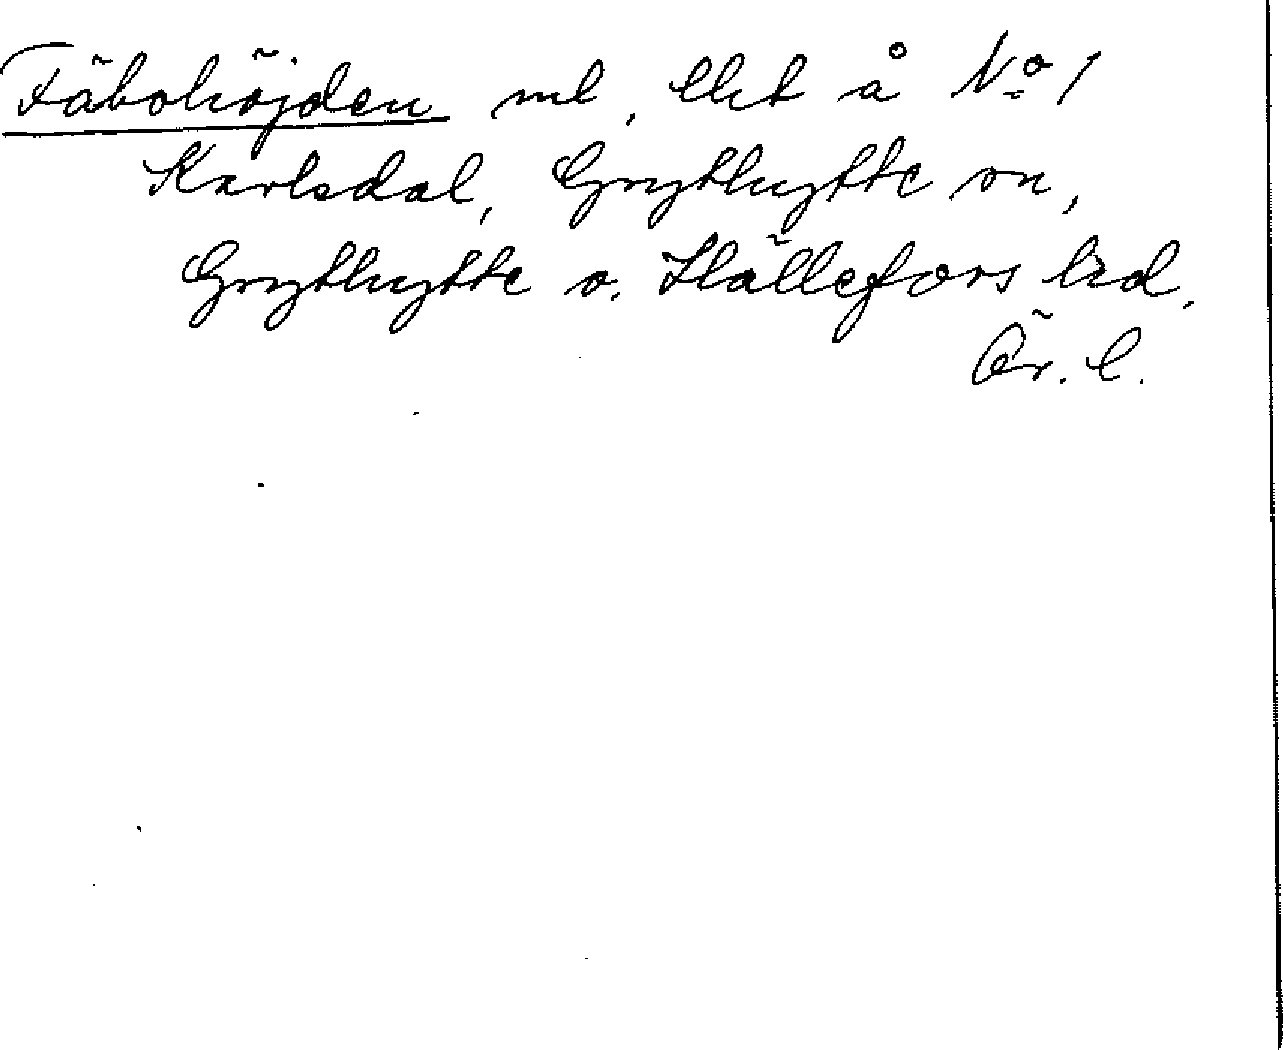 Fäbohöjden ml, lht å No 1
Karlsdal, Grythytte sn,
Grythytte o. Hällefors hd.
Ör. l.